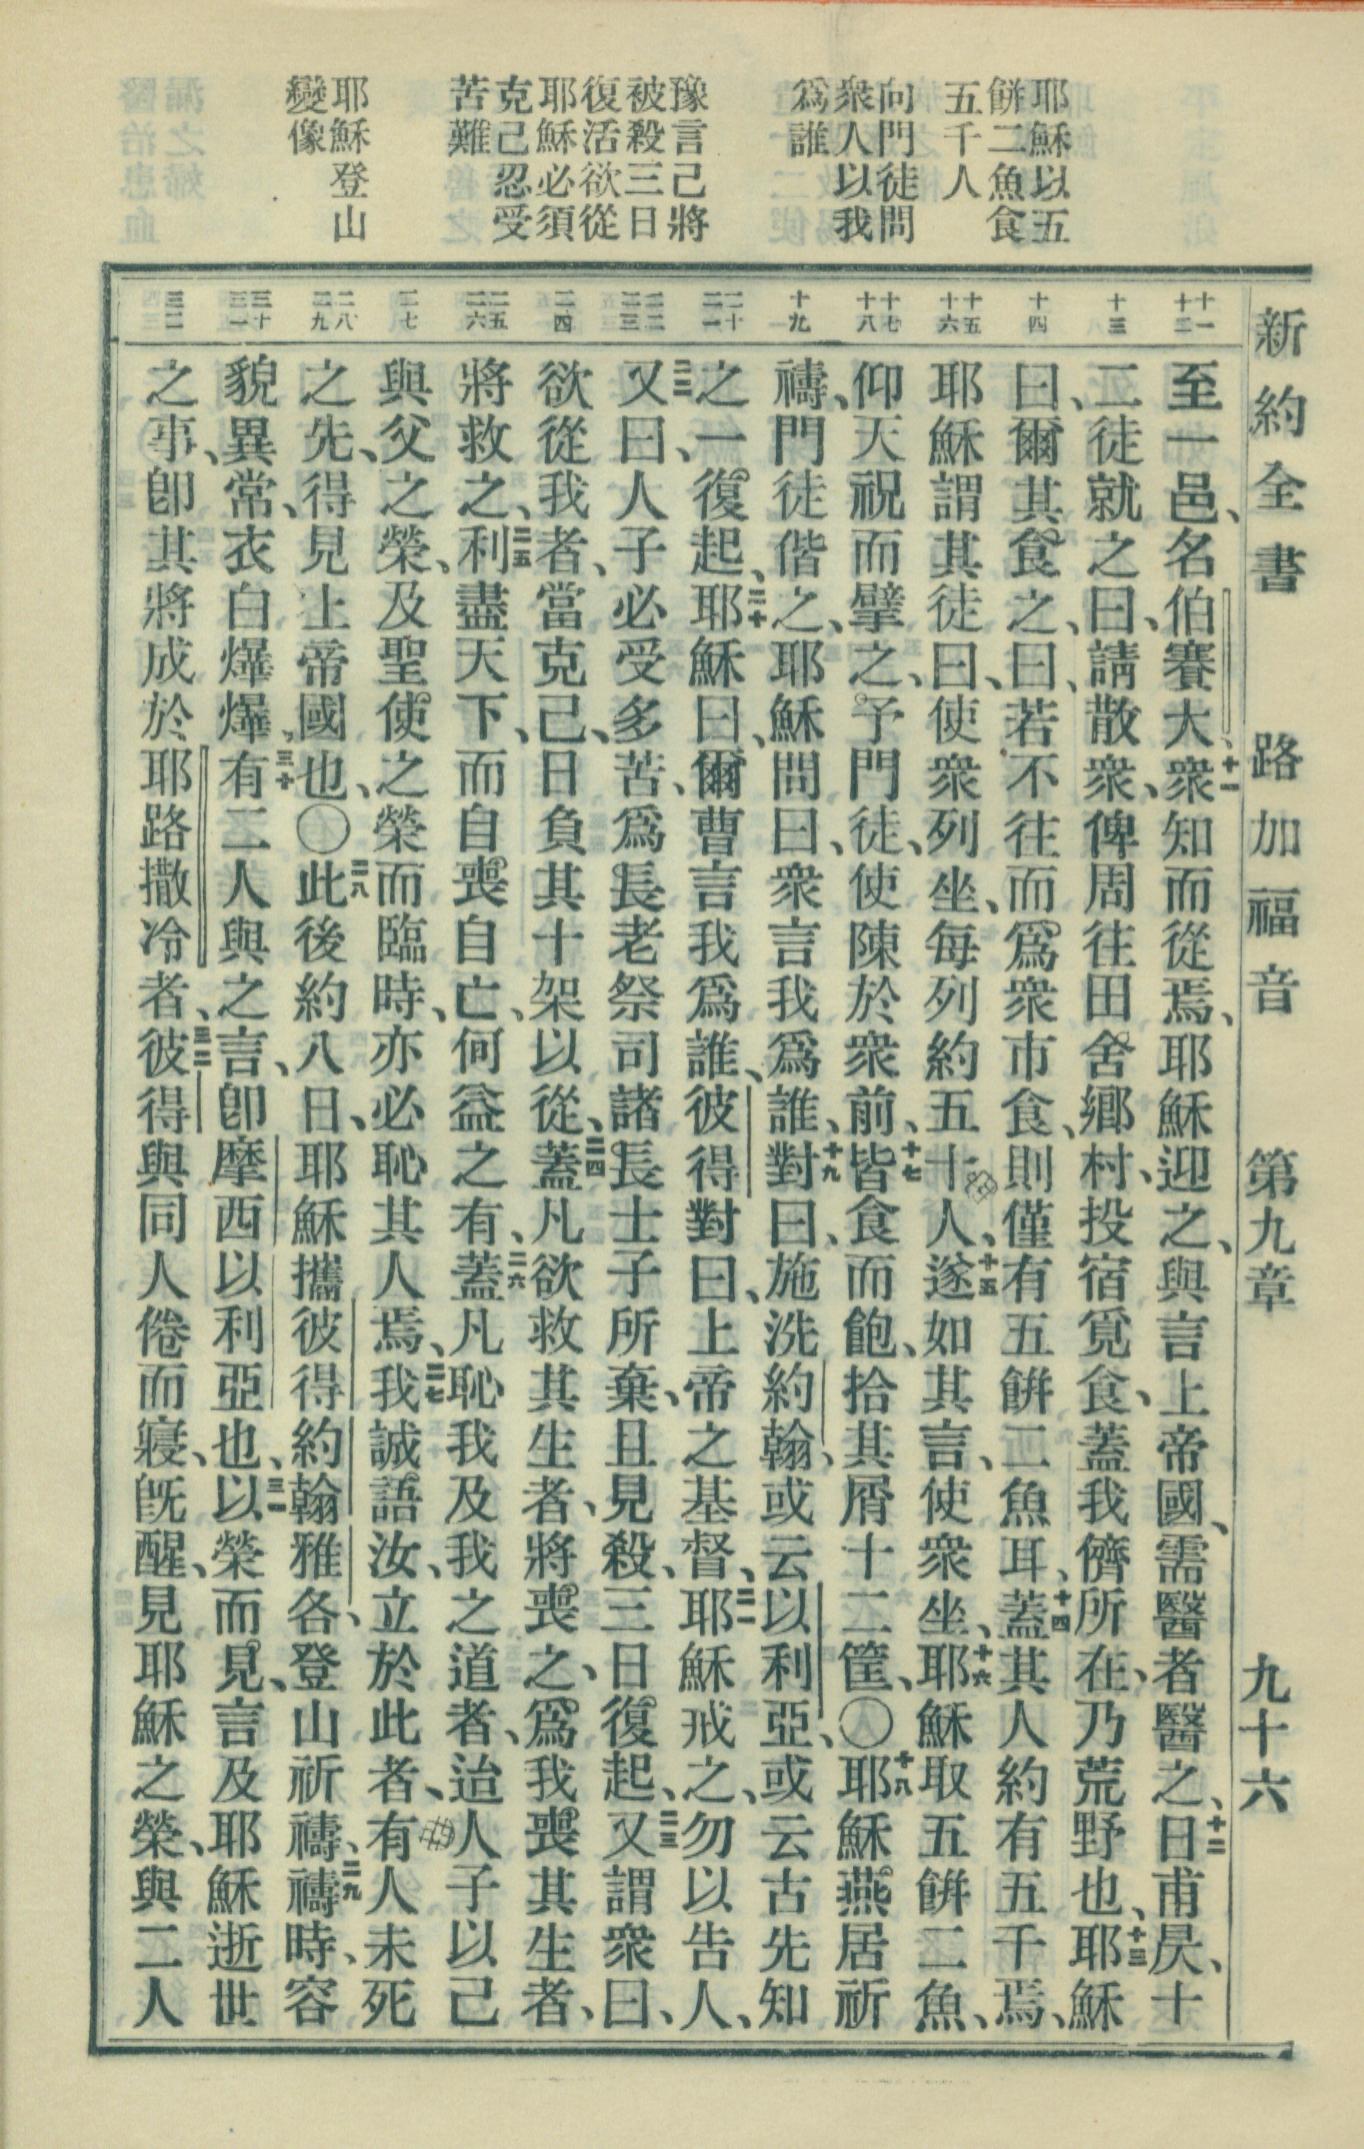 新約全書 路加福音 第九章 九十六
耶穌以五
餅二魚食
五千人
向門徒問
衆人以我
爲誰
豫言己將
被殺三日
復活欲從
耶穌必須
克己忍受
苦難
耶穌登山
變像
十一 十二 十三 十四 十五 十六 十七 十八 十九 二十 二一 二二 二三 二四 二五 二六 二七 二八 二九 三十 三一 三二
至一邑、名伯賽大、十一衆知而從焉、耶穌迎之、與言上帝國、需醫者醫之、十二日甫昃、十
二徒就之曰、請散衆、俾周往田舍鄉村、投宿覓食、蓋我儕所在、乃荒野也、十三耶穌
曰、爾其食之、曰、若不往而爲衆市食、則僅有五餅二魚耳、十四蓋其人約有五千焉、
耶穌謂其徒曰、使衆列坐、每列約五十人、十五遂如其言、使衆坐、十六耶穌取五餅二魚、
仰天祝而擘之、予門徒、使陳於衆前、十七皆食而飽、拾其屑十二筐、〇十八耶穌燕居祈
禱、門徒偕之、耶穌問曰、衆言我爲誰、十九對曰、施洗約翰、或云以利亞、或云古先知
之一復起、二十耶穌曰、爾曹言我爲誰、彼得對曰、上帝之基督、二一耶穌戒之、勿以告人、
二二又曰、人子必受多苦、爲長老祭司諸長士子所棄、且見殺、三日復起、二三又謂衆曰、
欲從我者、當克己、日負其十架以從、二四蓋凡欲救其生者、將喪之、爲我喪其生者、
將救之、二五利盡天下、而自喪自亡、何益之有、二六蓋凡恥我及我之道者、迨人子以己
與父之榮、及聖使之榮而臨時、亦必恥其人焉、二七我誠語汝、立於此者、有人未死
之先、得見上帝國也、〇二八此後約八日、耶穌攜彼得約翰雅各、登山祈禱、二九禱時、容
貌異常、衣白爗爗、三十有二人與之言、卽摩西以利亞也、三一以榮而見、言及耶穌逝世
之事、卽其將成於耶路撒冷者、三二彼得與同人倦而寢、旣醒、見耶穌之榮、與二人